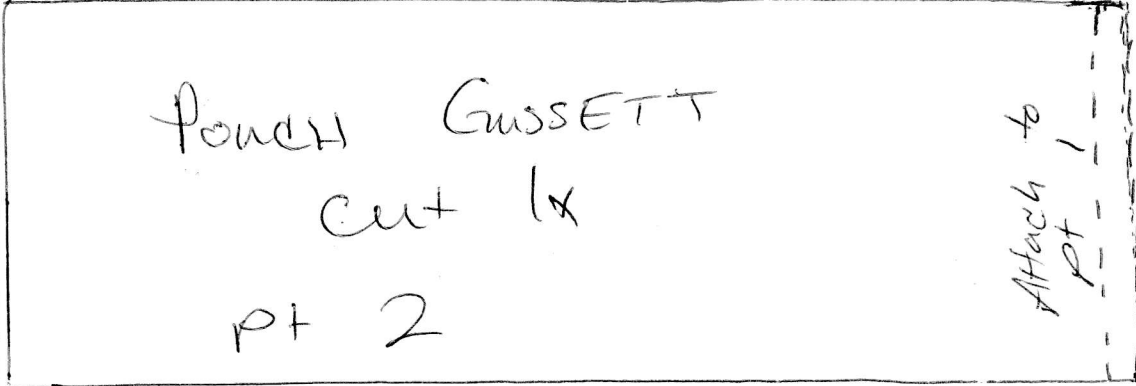 Pouch GussETT
cut 1x
pt 2
Attach to
pt 1